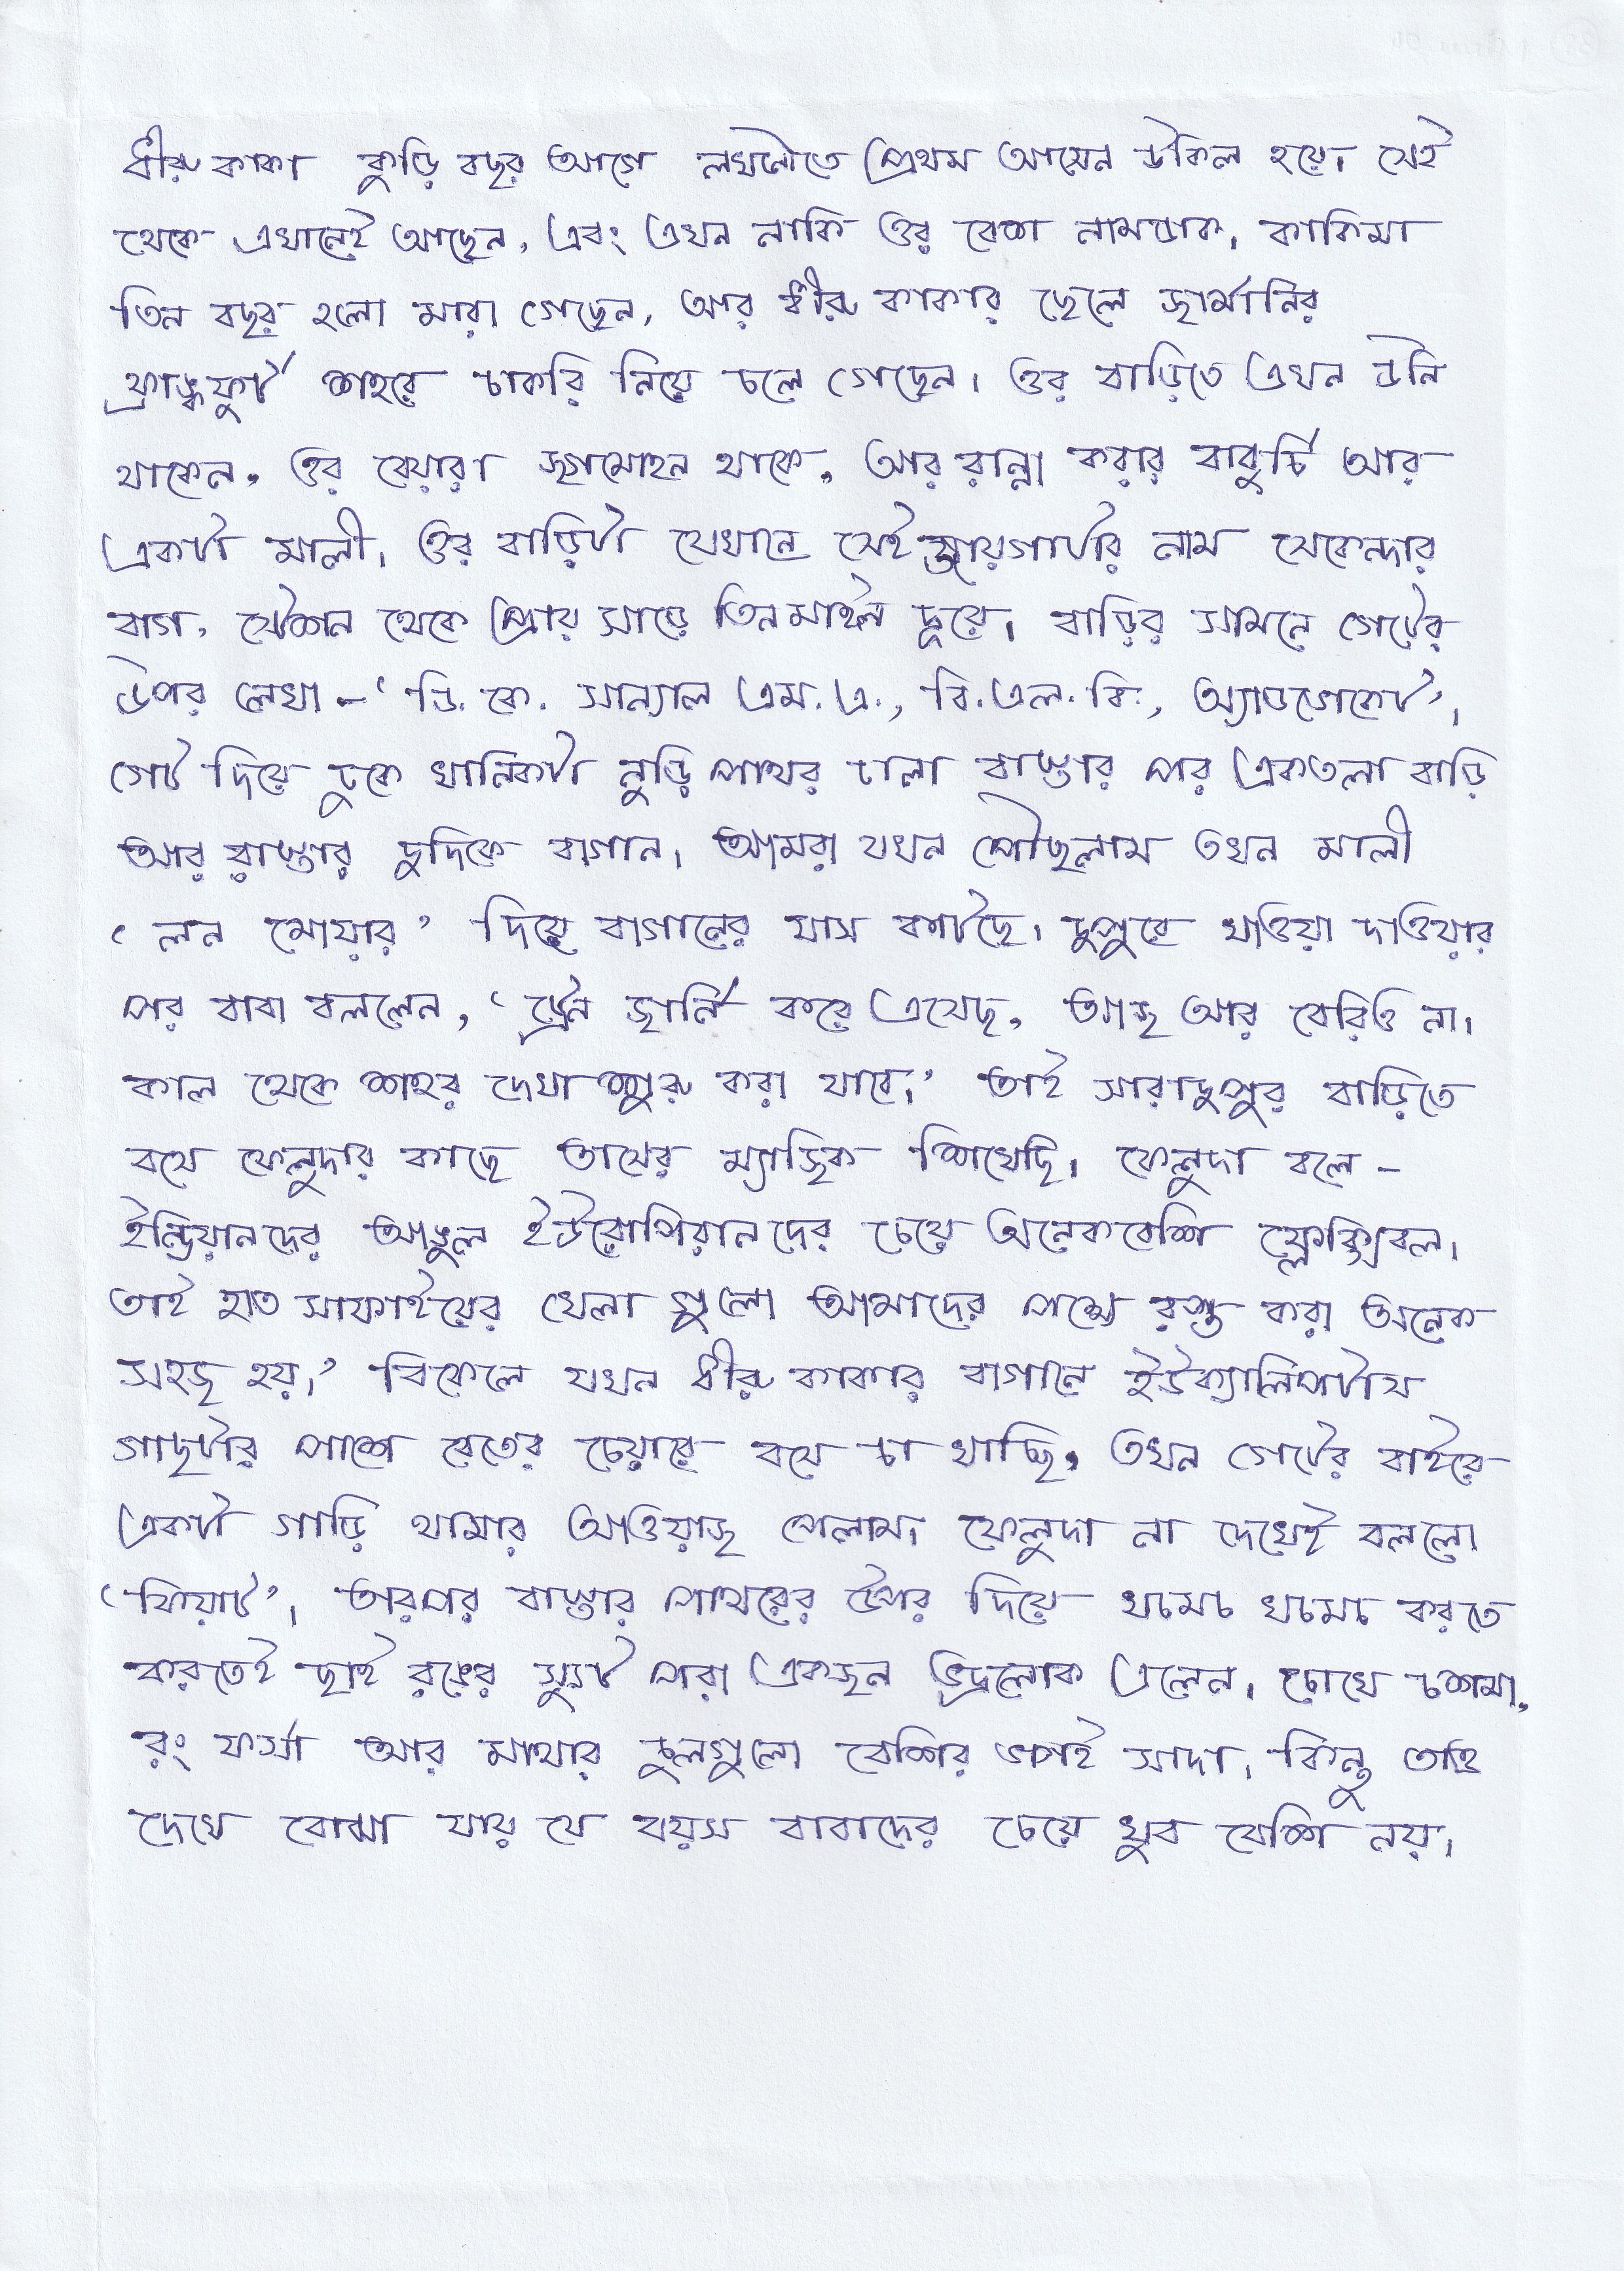 ধীরু কাকা কুড়ি বছর আগে লখনৌতে প্রথম আসেন উকিল হয়ে। সেই
থেকে এখানেই আছেন, এবং এখন নাকি ওর বেশ নামডাক। কাকিমা
তিন বছর হলো মারা গেছেন, আর ধীরু কাকার ছেলে জার্মানির
ফ্রাঙ্কফুর্ট শহরে চাকরি নিয়ে চলে গেছেন। ওর বাড়িতে এখন উনি
থাকেন, ওর বেয়ারা জগমোহন থাকে, আর রান্না করার বাবুর্চি আর
একটা মালী। ওর বাড়িটা যেখানে সেই জায়গাটার নাম সেকেন্দার
বাগ, স্টেশন থেকে প্রায় সাড়ে তিন মাইল দূরে। বাড়ির সামনে গেটের
উপর লেখা – ‘ ডি. কে. সান্যাল এম. এ., বি. এল. বি., অ্যাডভোকেট’।
গেট দিয়ে ঢুকে খানিকটা নুড়ি পাথর ঢালা রাস্তার পর একতলা বাড়ি
আর রাস্তার দুদিকে বাগান। আমরা যখন পৌঁছলাম তখন মালী
‘ লন মোয়ার ’ দিয়ে বাগানের ঘাস কাটছে। দুপুরে খাওয়া দাওয়ার
পর বাবা বললেন, ‘ ট্রেন জার্নি করে এসেছ, আজ আর বেরিও না।
কাল থেকে শহর দেখা শুরু করা যাবে।’ তাই সারাদুপুর বাড়িতে
বসে ফেলুদার কাছে তাসের ম্যাজিক শিখেছি। ফেলুদা বলে –
ইন্ডিয়ানদের আঙুল ইউরোপিয়ানদের চেয়ে অনেকবেশি ফ্লেক্সিবল।
তাই হাত সাফাইয়ের খেলা গুলো আমাদের পক্ষে রপ্ত করা অনেক
সহজ হয়।’ বিকেলে যখন ধীরু কাকার বাগানে ইউক্যালিপটাস
গাছটার পাশে বেতের চেয়ারে বসে চা খাচ্ছি, তখন গেটের বাইরে
একটা গাড়ি থামার আওয়াজ পেলাম। ফেলুদা না দেখেই বললো
‘ফিয়াট’। তারপর রাস্তার পাথরের উপর দিয়ে খচমচ খচমচ করতে
করতেই ছাই রঙের স্যুট পরা একজন ভদ্রলোক এলেন। চোখে চশমা,
রং ফর্সা আর মাথার চুলগুলো বেশির ভাগই সাদা। কিন্তু তাও
দেখে বোঝা যায় যে বয়স বাবাদের চেয়ে খুব বেশি নয়।